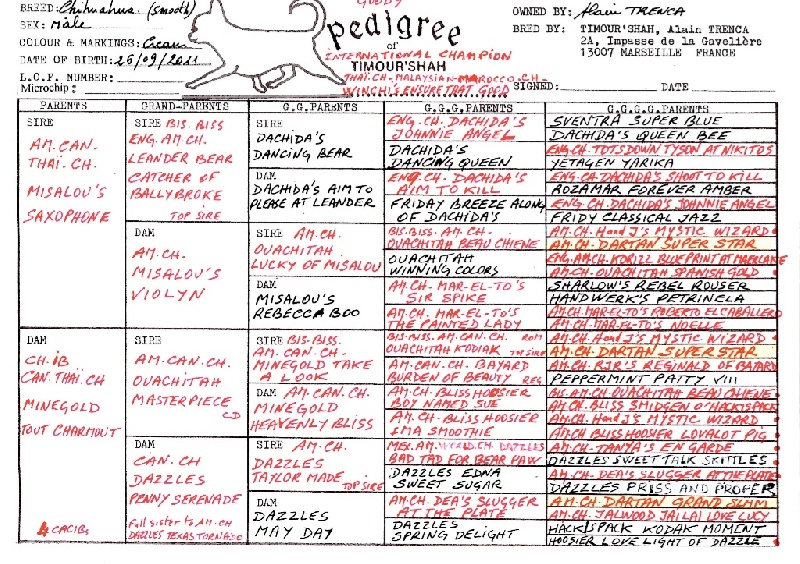 BREED: Chihuahua (smooth)
SEX: Male
COLOUR & MARKINGS: Cream
DATE OF BIRTH: 26/09/2011
L.O.F. NUMBER:
Microchip:
GOODY
pedigree
of
INTERNATIONAL CHAMPION
TIMOUR'SHAH
THAI.CH-MALAYSIAN-MAROCCO.CH-
WINCHI'S ENSURE THAT GOOD
OWNED BY: Alain TRENCA
BRED BY: TIMOUR'SHAH, Alain TRENCA
2A, Impasse de la Gavelière
13007 MARSEILLE FRANCE
SIGNED: DATE
PARENTS
GRAND-PARENTS
G.G.PARENTS
G.G.G.PARENTS
G.G.G.G.PARENTS
SIRE
AM.CAN.
THAI.CH.
MISALOU'S
SAXOPHONE
DAM
CH.IB
CAN.THAI.CH
MINEGOLD
TOUT CHARMOUT
4 CACIBs
SIRE BIS.BISS
ENG.AM.CH.
LEANDER BEAR
CATCHER OF
BALLYBROKE
TOP SIRE
DAM
AM.CH.
MISALOU'S
VIOLYN
SIRE
AM.CAN.CH.
OUACHITAH
MASTERPIECE
CD
DAM
CAN.CH
DAZZLES
PENNY SERENADE
Full sister to AM-CH
DAZZLES TEXAS TORNADO
SIRE
DACHIDA'S
DANCING BEAR
DAM
DACHIDA'S AIM TO
PLEASE AT LEANDER
SIRE AM.CH.
OUACHITAH
LUCKY OF MISALOU
DAM
MISALOU'S
REBECCA BOO
SIRE BIS-BISS.
AM.CAN.CH-
MINEGOLD TAKE
A LOOK
DAM AM.CAN.CH.
MINEGOLD
HEAVENLY BLISS
SIRE AM.CH.
DAZZLES
TAYLOR MADE
TOP SIRE
DAM
DAZZLES
MAY DAY
ENG.CH. DACHIDA'S
JOHNNIE ANGEL
DACHIDA'S
DANCING QUEEN
ENG.CH. DACHIDA'S
AIM TO KILL
FRIDAY BREEZE ALONG
OF DACHIDA'S
BIS-BISS. AM.CH-
OUACHITAH BEAU CHIENE
OUACHITAH
WINNING COLORS
AM.CH - MAR-EL-TO'S
SIR SPIKE
AM.CH. MAR-EL-TO'S
THE PAINTED LADY
BIS-BISS.AM.CAN.CH. ROM
OUACHITAH KODIAK TOP SIRE
AM.CAN-CH- BAYARD
BURDEN OF BEAUTY REG
AM.CH.BLISS HOOSIER
BOY NAMED SUE
AM.CH. BLISS HOOSIER
IMA SMOOTHIE
MEX.AM.WORLD.CH DAZZLES
BAD TAD FOR BEAR PAW
DAZZLES EDNA
SWEET SUGAR
AM.CH. DEA'S SLUGGER
AT THE PLATE
DAZZLES
SPRING DELIGHT
SVENTRA SUPER BLUE
DACHIDA'S QUEEN BEE
ENG-CH-TOTSDOWN TYSON AT NIKITOS
YETAGEN YARIKA
ENG.CH.DACHIDA'S SHOOT TO KILL
ROZAMAR FOREVER AMBER
ENG.CH.DACHIDA'S JOHNNIE ANGEL
FRIDY CLASSICAL JAZZ
AM.CH. H and J'S MYSTIC WIZARD
AM.CH-DARTAN SUPER STAR
ENG.AM.CH.KORIZZ BLUE PRINT AT MAERLAKE
AM-CH-OUACHITAH SPANISH GOLD
SHARLOW'S REBEL ROUSER
HANDWERK'S PETRINELA
AM.CH.MAR-EL-TO'S ROBERTO EL CABALLERO
AM.CH.MAR-EL-TO'S NOELLE
AM.CH. H and J'S MYSTIC WIZARD
AM.CH-DARTAN SUPER STAR
AM-CH - RJR'S REGINALD OF BAYARD
PEPPERMINT PATTY VIII
BIS.AM.CH.OUACHITAH BEAU CHIENE
AM.CH.BLISS SMIDGEN O'HACK'S PACK
AM.CH. H and J'S MYSTIC WIZARD
AM.CH BLISS HOOSIER LOVALOT PIG
AM.CH-TANYA'S EN GARDE
DAZZLES SWEET TALK SKITTLES
AM.CH-DEA'S SLUGGER AT THE PLATE
DAZZLES PRISS AND PROPER
AM.CH-DARTAN GRAND SLAM
AM-CH. JALWOOD JAI LAI LOVE LUCY
HACK'S PACK KODAK MOMENT
HOOSIER LOVE LIGHT OF DAZZLE